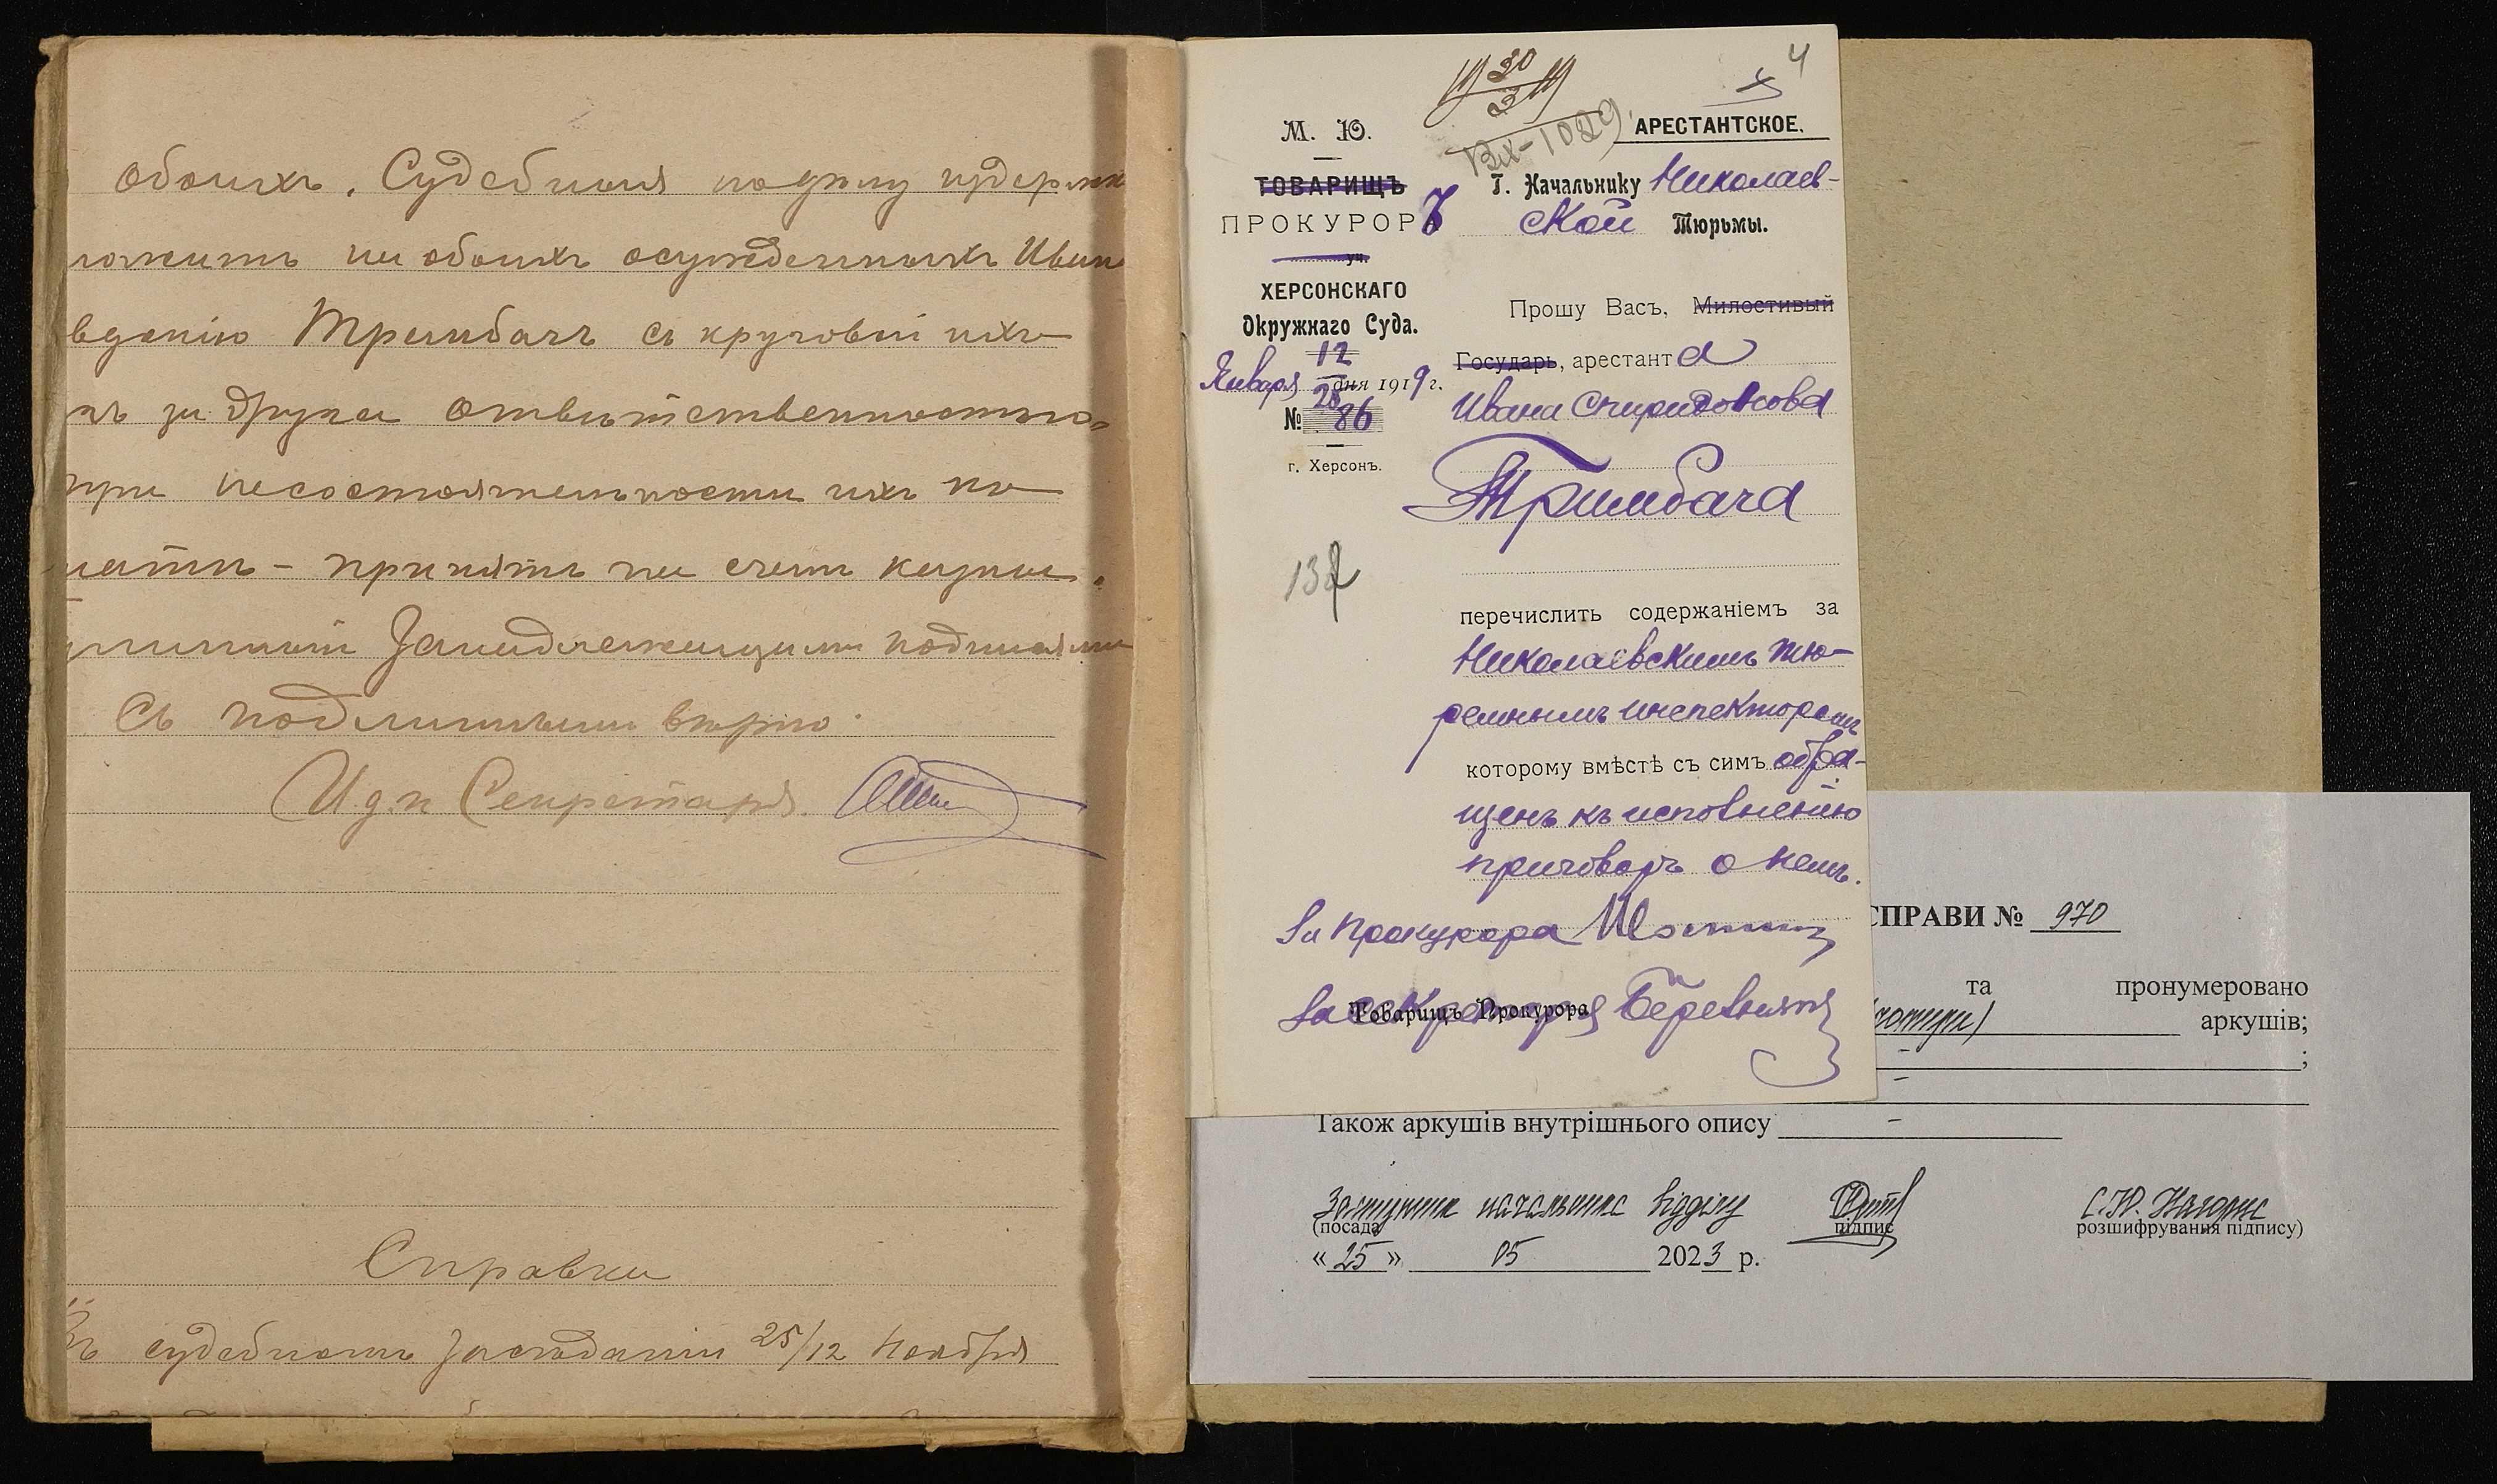 обоихъ. Судебныя по дѣлу издержки
ложить на обоихъ осужденныхъ Ивана
Евдокію Тримбачъ съ круговой ихъ
гъ за друга отвѣтственностью,
при несостоятельности ихъ къ
латѣ – принять на счетъ казны.
Подлинный за надлежащими подписями
Съ подлиннымъ вѣрно:
И. д. п. Секретаря
Справка
Въ судебномъ засѣданіи 25/12 Ноября
19 30/3 19
Вх-1029
4
М. Ю.
АРЕСТАНТСКОЕ.
ТОВАРИЩЪ
ПРОКУРОРЪ
уч.
ХЕРСОНСКАГО
Окружнаго Суда.
Января 12/28 дня 1919 г.
№ 86
г. Херсонъ.
Г. Начальнику Николаев-
ской Тюрьмы.
Прошу Васъ, Милостивый
Государь, арестанта
Ивана Спиридонова
Тримбача
перечислить содержаніемъ за
Николаевскимъ тю-
ремнымъ инспекторомъ
которому вмѣстѣ съ симъ обра-
щенъ къ исполненію
приговоръ о немъ.
За Прокурора
Товарищъ Прокурора
За секретаря
СПРАВИ № 970
та пронумеровано
аркушів;
;
Також аркушів внутрішнього опису –
Заступник начальника відділу
(посада
підпис
розшифрування підпису)
« 25 » 05 2023 р.